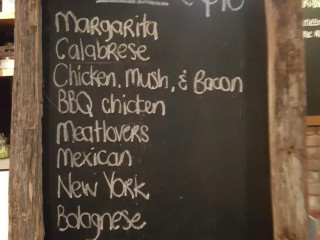 Margarita
Calabrese
Chicken, Mush, & Bacon
BBQ chicken
Meatlovers
Mexican
New York
Bolagnese